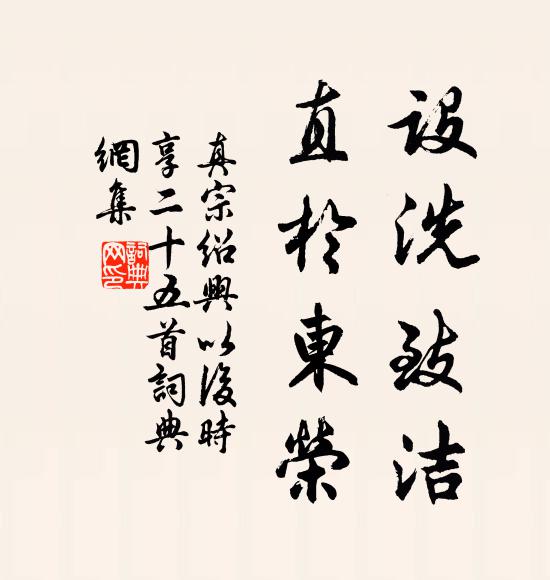 设洗致洁
直於東榮
真宗绍興以後時
享二十五首詞典
網集
詞典網印